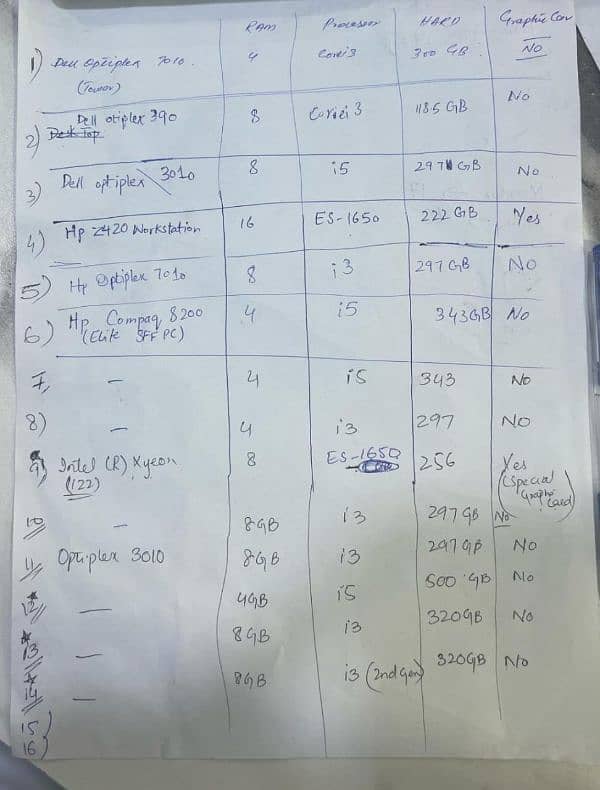 RAM Processor HARD Graphic Car
1) Dell Optiplex 7010. 4 Corei3 300 GB. No
(Tower)
2) Dell otiplex 390 8 Coriei 3 1185 GB No
Desk Top
3) Dell optiplex 3010 8 i5 297 GB No
4) Hp Z420 Workstation 16 ES-1650 222 GB Yes
5) Hp Optiplex 7010 8 i3 297 GB NO
6) Hp Compaq 8200 4 i5 343GB No
(Elite SFF PC)
7, — 4 i5 343 No
8) — 4 i3 297 NO
9) Intel (R) Xyeon 8 ES-1650 256 Yes
(122) (Special
Graphic
Card)
10 — 8GB i3 297 GB No
11 Optiplex 3010 8GB i3 297 GB No
12 — 4GB i5 500 GB No
13 — 8GB i3 320GB No
14 — 8GB i3 (2nd Gen) 320GB No
15)
16)